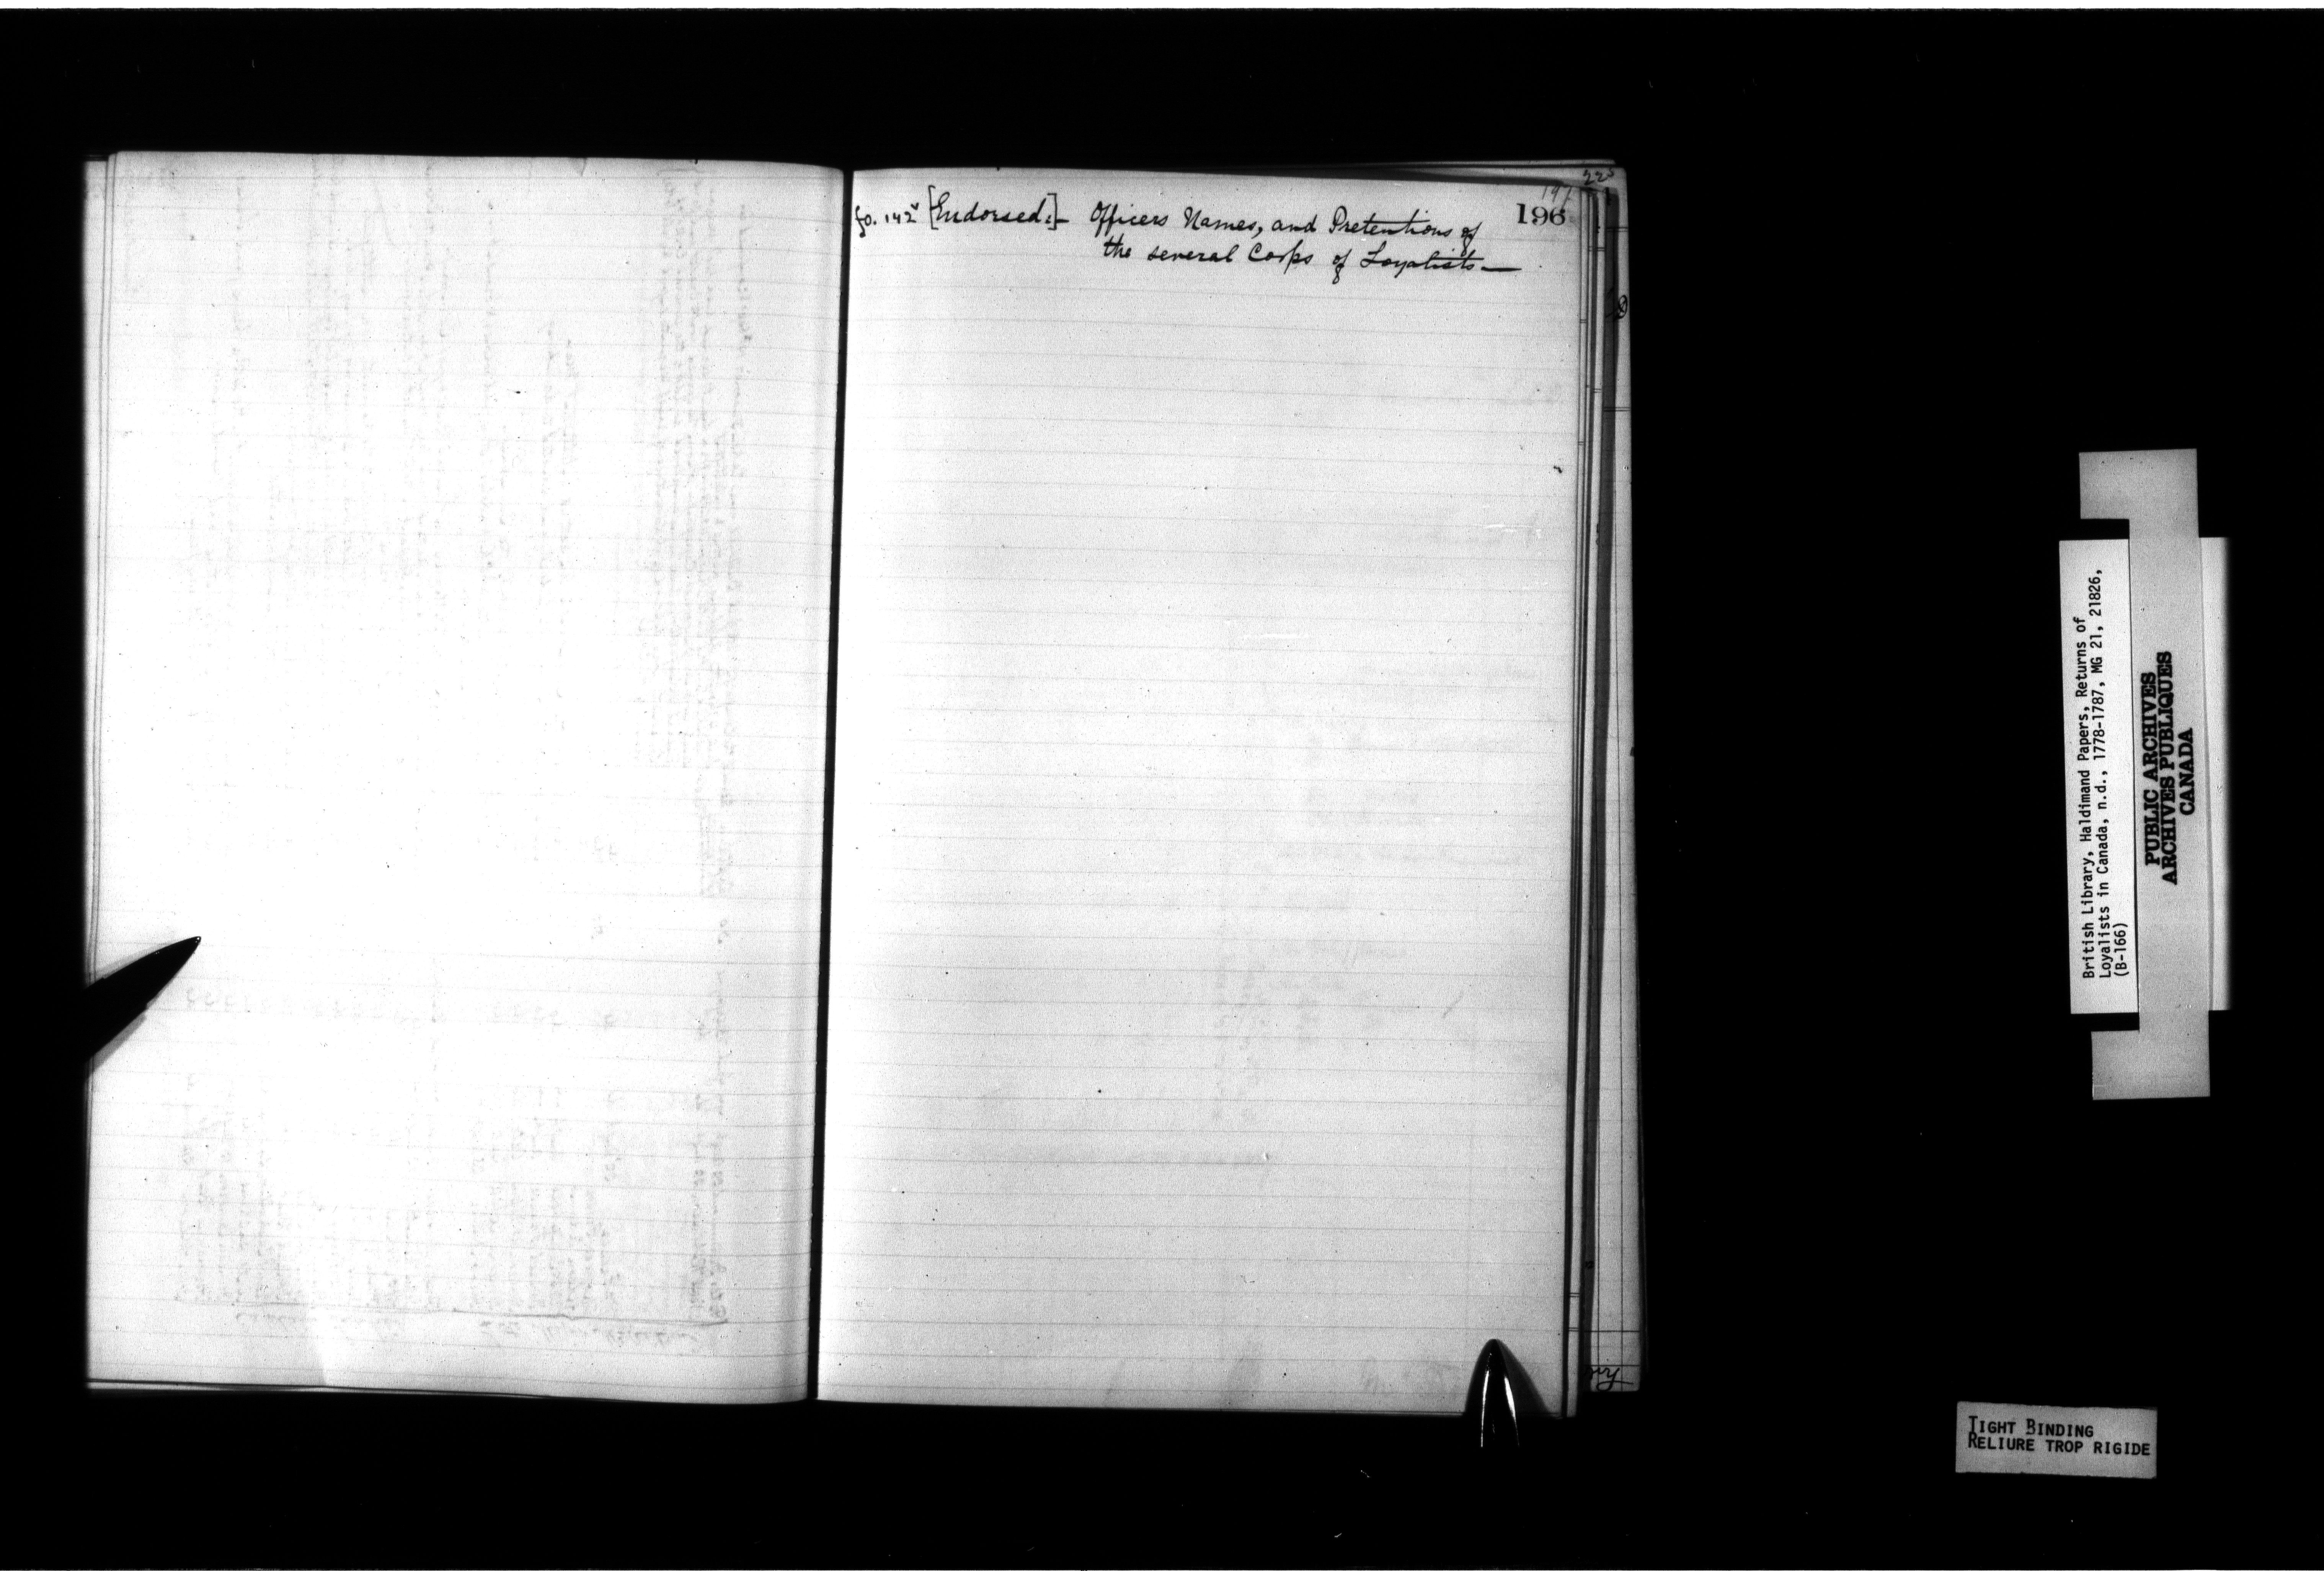 225
197
196
fo. 142v [Endorsed:]— Officers Names, and Pretentions of
the several Corps of Loyalists—
British Library, Haldimand Papers, Returns of
Loyalists in Canada, n.d., 1778-1787, MG 21, 21826,
(B-166)
PUBLIC ARCHIVES
ARCHIVES PUBLIQUES
CANADA
TIGHT BINDING
RELIURE TROP RIGIDE